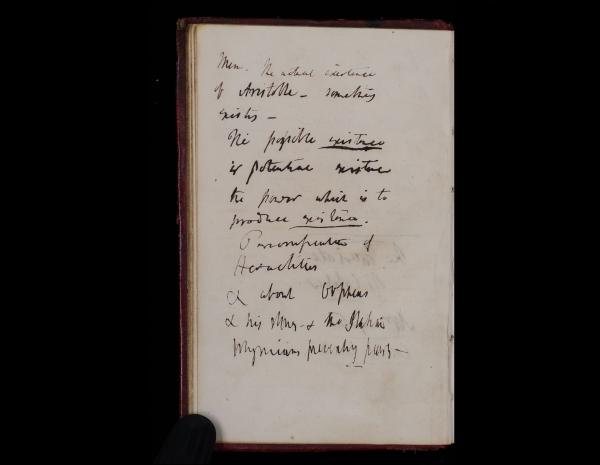 Mem. The actual existence
of Aristotle - something
exists -
The possible existence
is potential existence
the power which is to
produce existence.
Personification of
Heraclitus
& about Orpheus
& his & the
physicians